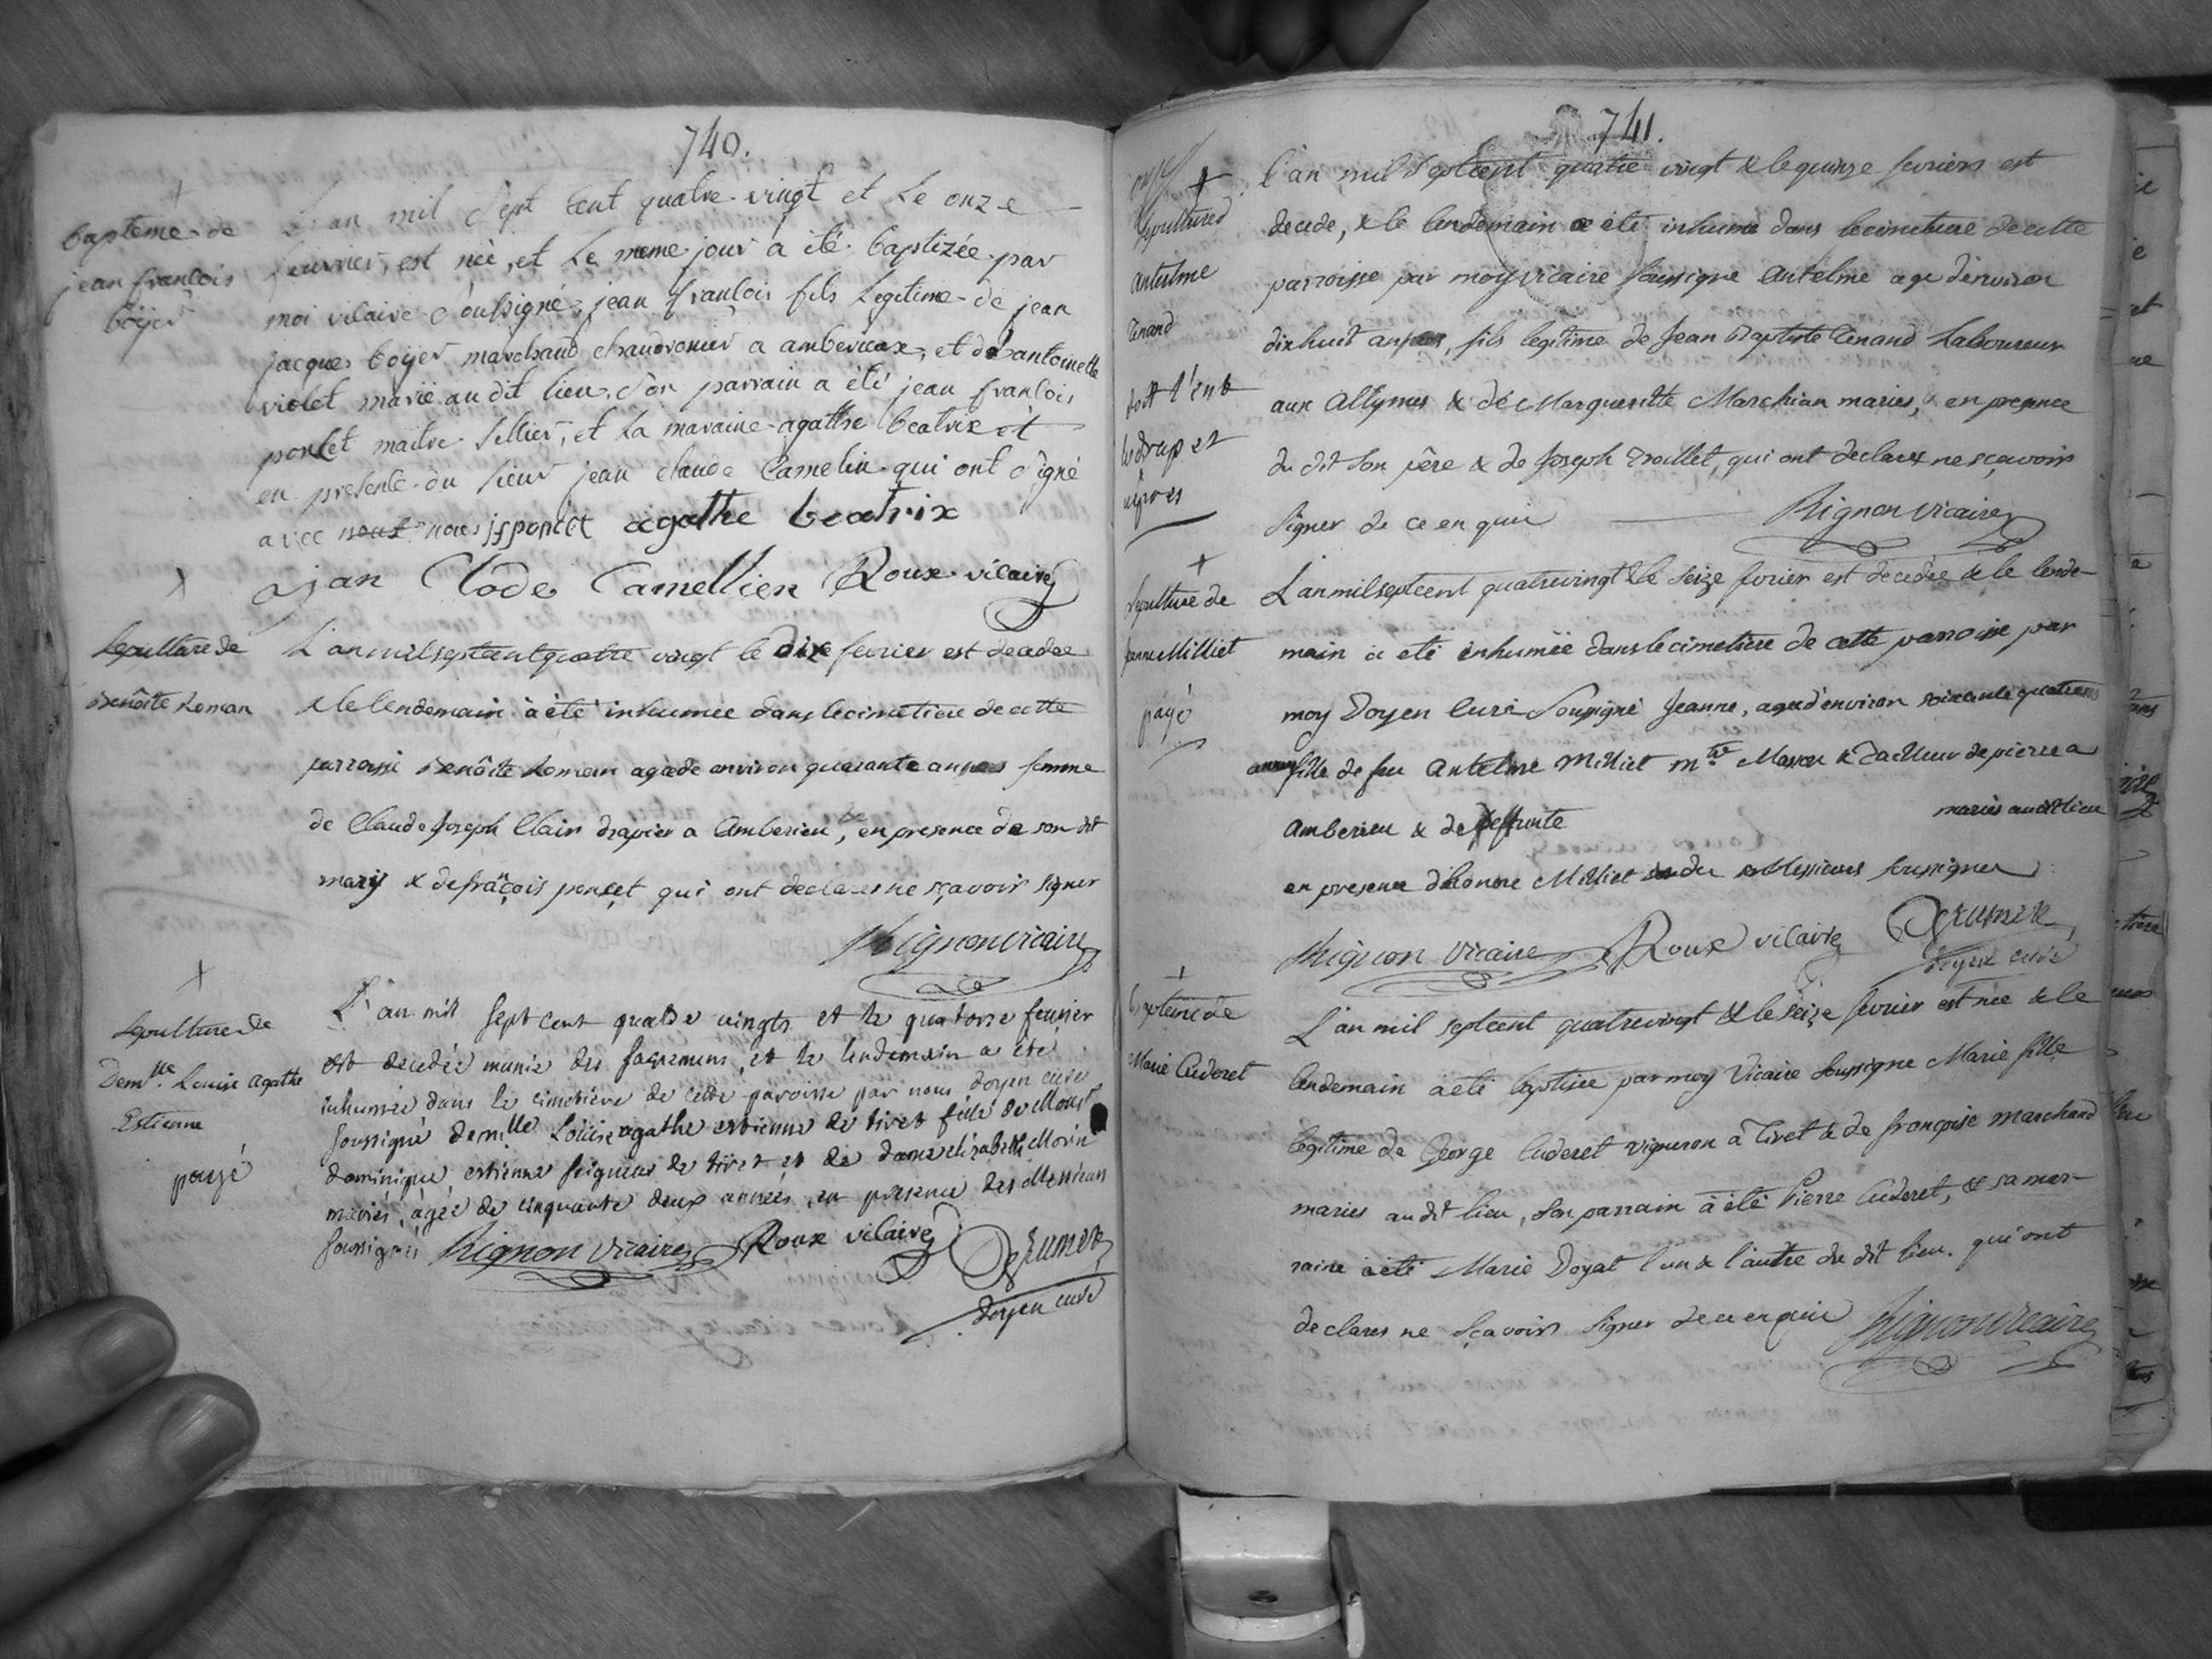 740.
baptême de
jean francois
boyer
L'an mil Sept Cent quatre vingt et Le onze
feuvrier, est née, et Le meme jour a été baptizée par
moi vicaire Soussigné, jean françois fils Legitime de jean
jacques boyer marchand chaudronier a amberieux, et de antoinette
violet marié au dit lieu, Son parrain a été jean francois
poncet maitre Sellier, et la maraine agathe beatrix et
en presence du Sieur jean claude Camelin qui ont signé
avec nous jfponcet agathe beatrix
jan Clode Camellien Roux vicaire
Sepulture de
Benôite Roman
L'an mil septcent quatre vingt le dix fevrier est decedee
& le lendemain à été inhumée dans le cimetiere de cette
parroisse Benôite Roman agée de environ quarante années femme
de Claude Joseph Clair drapier a Amberieu, en presence de son dit
mary & de françois poncet qui ont declares ne sçavoir signer
Rignon vicaire
Sepulture de
Demlle Louise Agathe
Estienne
payé
L'an mil sept cent quatre vingts et le quatorze fevrier
est decedée munie des sacremens, et le lendemain a été
inhumée dans le cimetiere de cette paroisse par nous doyen curé
soussigné demlle Loüise agathe estienne de tiret fille de Monsr
dominique estienne seigneur de tiret et de dame elizabeth Morin
mariés, agée de cinquante deux années, en presence des Messieurs
soussignés Rignon vicaire Roux vicaire
doyen curé
741.
Sepulture d
antelme
tenand
doit l'ent
le drap et
L'an mil Septcent quatre vingt & le quinze fevriers est
decede, & le lendemain a été inhumé dans le cimetiere de cette
parroisse par moy vicaire soussigné Antelme age d'environ
dixhuit années, fils legitime de Jean Baptiste Tenand Laboureur
aux Allymes & de Margueritte Marchian maries, en presence
du dit son père & de Joseph Trollet, qui ont declarez ne sçavoir
signer de ce enquis
Rignon vicaire
Sepulture de
jeanne Milliet
payé
L'an mil septcent quatrevingt & le seize fevrier est decedée & le lende-
main à été inhumée dans le cimetiere de cette parroisse par
moy Doyen Curé Soussigné Jeanne, agee d'environ soixante quatre ans
fille de feu Antelme Milliet mtre Masson & Tailleur de pierre a
Amberieu & de deffunte
mariés audit lieu
en presence d'honore Milliet & des Messieurs soussignes
Rignon vicaire Roux vicaire
doyen curé
Baptême de
Marie Cuderet
L'an mil septcent quatrevingt & le seize fevrier est née & le
lendemain à été baptisée par moy Vicaire soussigné Marie fille
legitime de George Cuderet vigneron à Tiret & de françoise marchand
maries au dit lieu, son parrain à été Pierre Cuderet, & sa mar-
raine à été Marie Doyat l'un & l'autre du dit lieu. qui ont
declares ne sçavoir signer de ce enquis Rignon vicaire